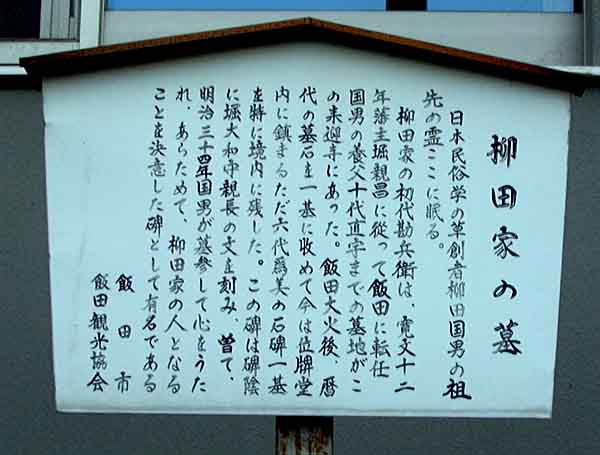 柳田家の墓
日本民俗学の草創者柳田国男の祖
先の霊ここに眠る。
柳田家の初代勘兵衛は、寛文十二
年藩主堀親昌に従って飯田に転任
国男の養父十代直平までの墓地がこ
の来迎寺にあった。飯田大火後、暦
代の墓石を一基に収めて今は位牌堂
内に鎮まるただ六代爲美の石碑一基
を特に境内に残した。この碑は碑陰
に堀大和守親長の文を刻み 曽て、
明治三十四年国男が墓参して心をうた
れ、あらためて、柳田家の人となる
ことを決意した碑として有名である
飯田市
飯田観光協会